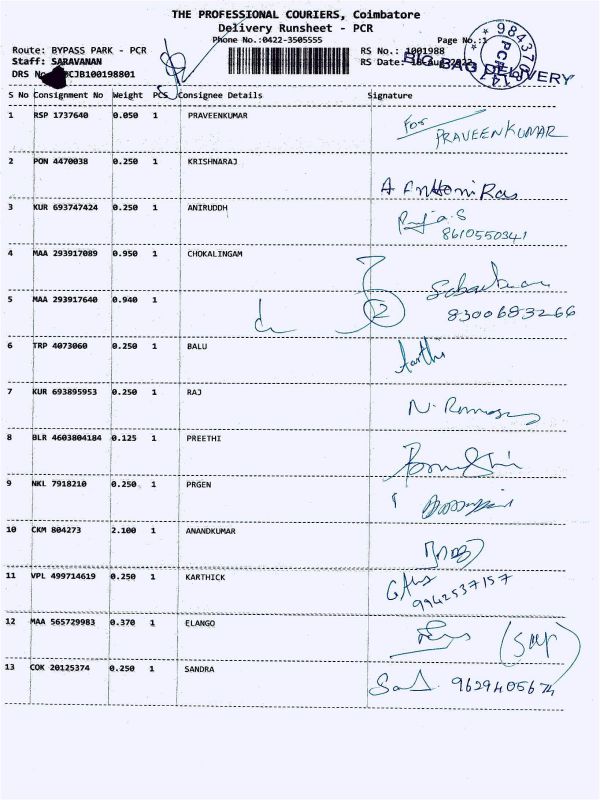 THE PROFESSIONAL COURIERS, Coimbatore
Delivery Runsheet - PCR
Phone No.:0422-3505555 Page No.:1
Route: BYPASS PARK - PCR RS No.: 1001988
Staff: SARAVANAN RS Date:
DRS No CJB100198801
BIG BAG DELIVERY
S No Consignment No Weight PCS Consignee Details Signature
1 RSP 1737640 0.050 1 PRAVEENKUMAR For PRAVEENKUMAR
2 PON 4470038 0.250 1 KRISHNARAJ
3 KUR 693747424 0.250 1 ANIRUDDH
8610550341
4 MAA 293917089 0.950 1 CHOKALINGAM
5 MAA 293917640 0.940 1 2 8300683266
6 TRP 4073060 0.250 1 BALU Aarthi
7 KUR 693895953 0.250 1 RAJ
8 BLR 4603804184 0.125 1 PREETHI
9 NKL 7918210 0.250 1 PRGEN
10 CKM 804273 2.100 1 ANANDKUMAR
11 VPL 499714619 0.250 1 KARTHICK 9942537157
12 MAA 565729983 0.370 1 ELANGO
13 COK 20125374 0.250 1 SANDRA